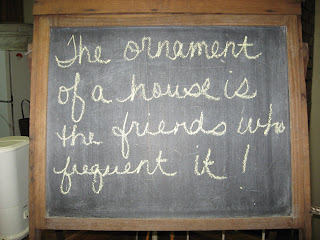 The ornament
of a house is
the friends who
frequent it!